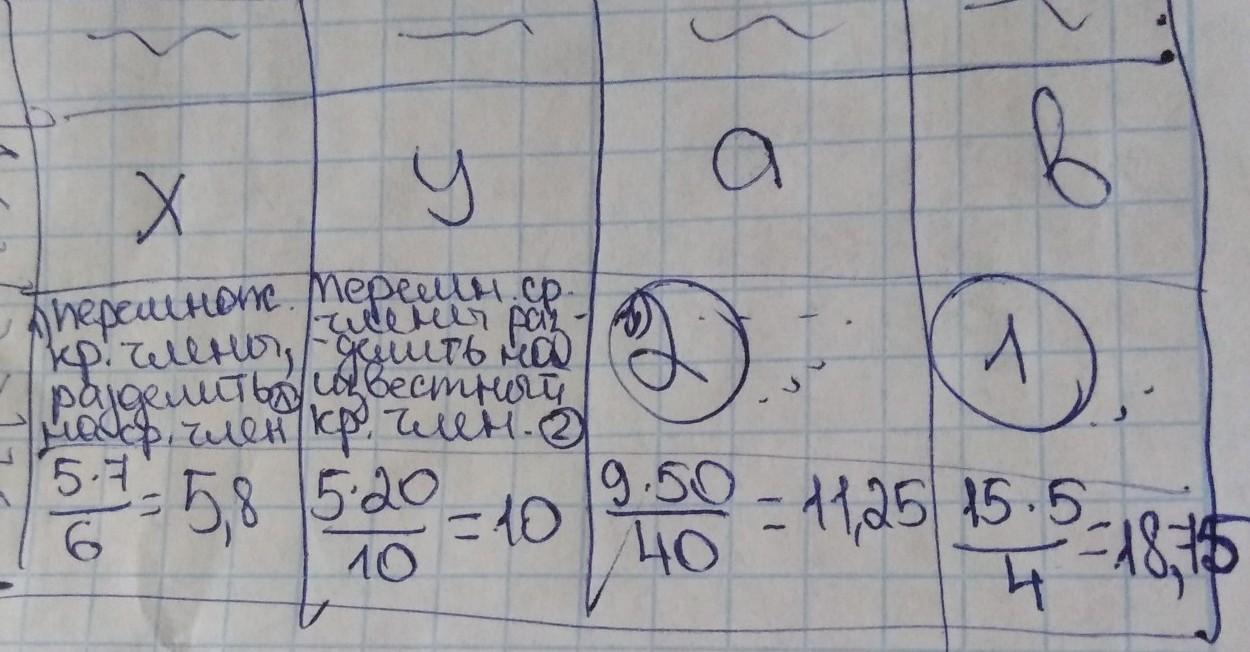 х у а в
перемнож.
кр. члены,
разделить ①
на ср. член
перемн. ср.
члены раз-
-делить на
известный
кр. член. ②
2
1
5·7/6 = 5,8
5·20/10 = 10
9·50/40 = 11,25
15·5/4 = 18,75